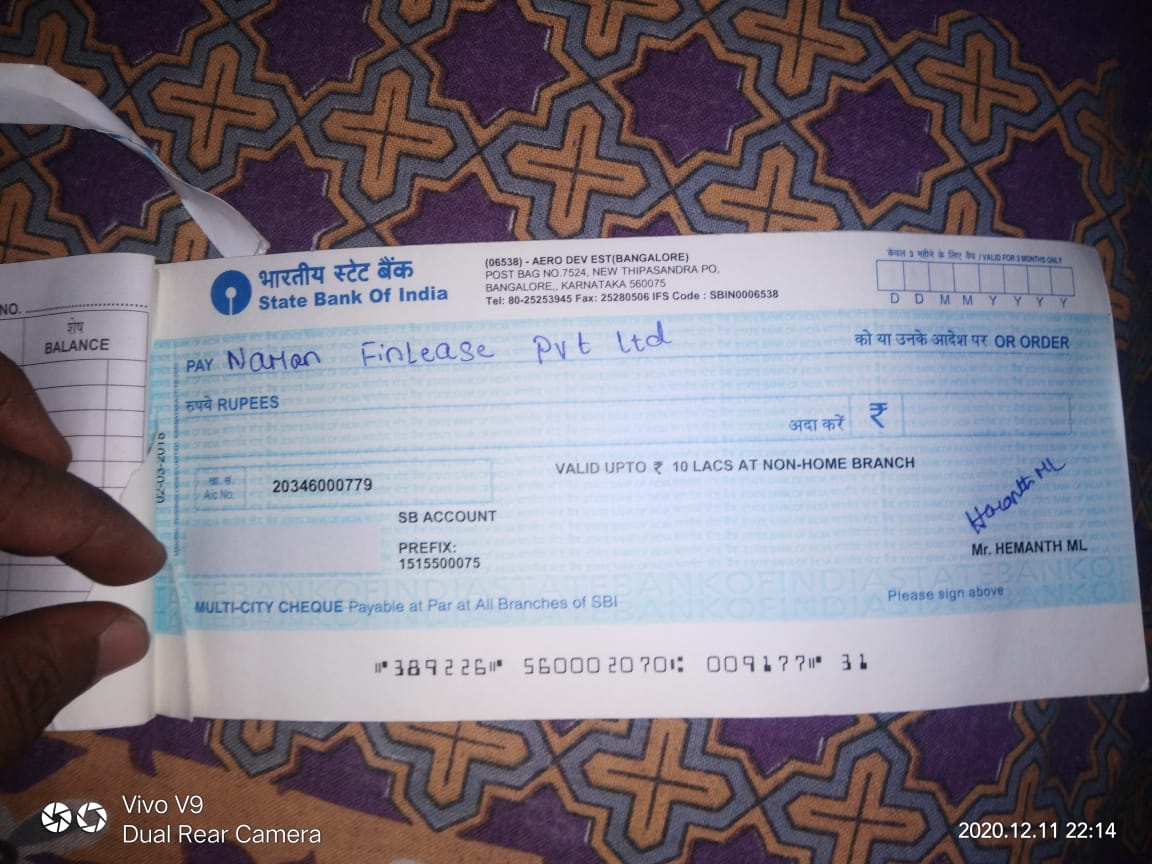 NO.
शेष
BALANCE
भारतीय स्टेट बैंक
State Bank Of India
(06538) - AERO DEV EST(BANGALORE)
POST BAG NO.7524, NEW THIPASANDRA PO,
BANGALORE,, KARNATAKA 560075
Tel: 80-25253945 Fax: 25280506 IFS Code : SBIN0006538
केवल 3 महीने के लिए वैध / VALID FOR 3 MONTHS ONLY
D D M M Y Y Y Y
PAY Naman Finlease Pvt Ltd
को या उनके आदेश पर OR ORDER
रुपये RUPEES
अदा करें ₹
02-03-2016
खा. सं.
A/c No.
20346000779
VALID UPTO ₹ 10 LACS AT NON-HOME BRANCH
SB ACCOUNT
PREFIX:
1515500075
Hemanth ML
Mr. HEMANTH ML
MULTI-CITY CHEQUE Payable at Par at All Branches of SBI
Please sign above
⑈389226⑈ 560002070⑆ 009177⑈ 31
Vivo V9
Dual Rear Camera
2020.12.11 22:14